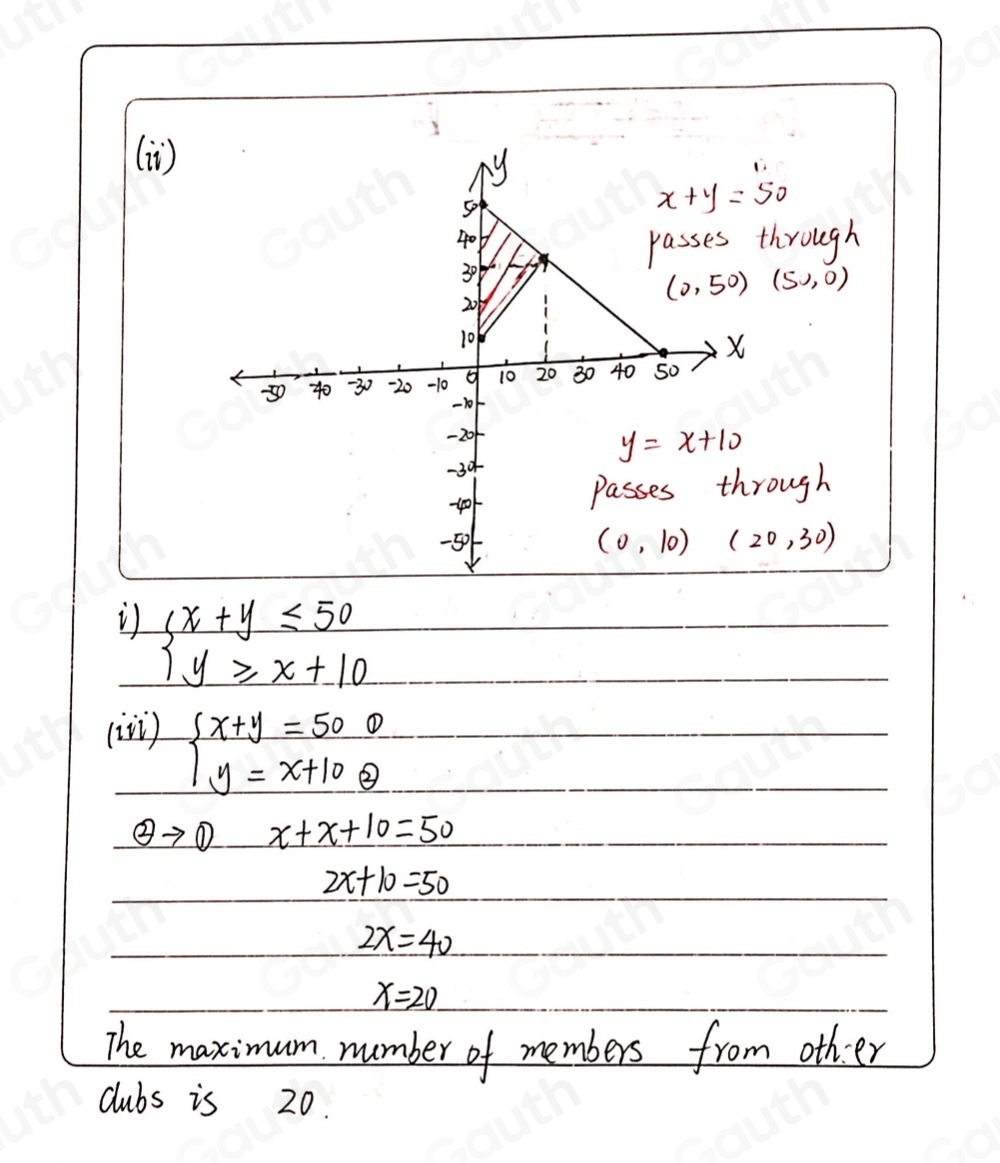 (ii)
y
x+y = 50
passes through
(0, 50) (50, 0)
50
40
30
20
10
X
-50 -40 -30 -20 -10 0 10 20 30 40 50
-10
-20
-30
-40
-50
y = x+10
Passes through
(0, 10) (20, 30)
i) {x + y ≤ 50
y ≥ x + 10
(iii) {x+y = 50 ①
y = x+10 ②
②→① x+x+10=50
2x+10=50
2x=40
x=20
The maximum number of members from other
clubs is 20.
Gauth